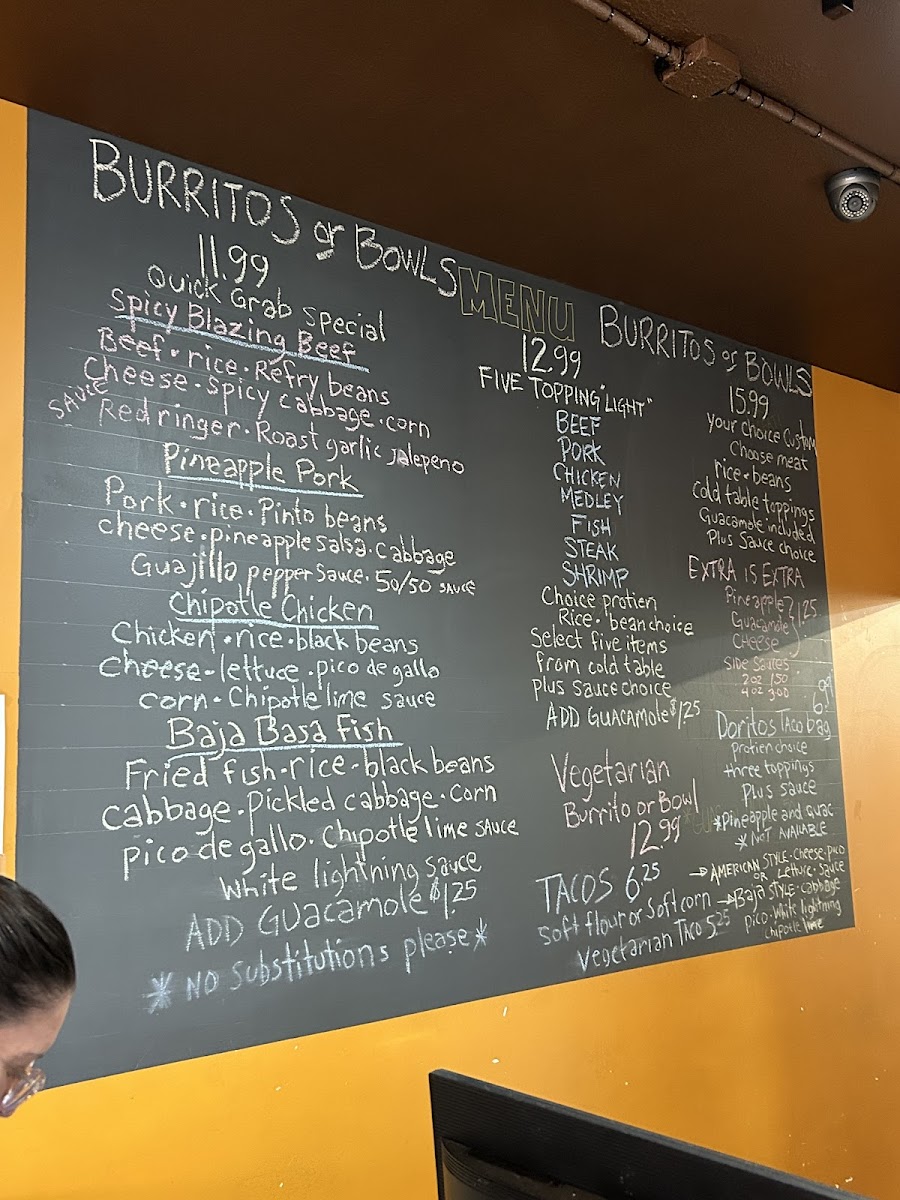 BURRITOS or BOWLS
11.99
Quick Grab special
Spicy Blazing Beef
Beef · rice · Refry beans
Cheese · Spicy cabbage · corn
SAUCE Redringer · Roast garlic jalepeno
Pineapple Pork
Pork · rice · Pinto beans
cheese · pineapple salsa · cabbage
Guajillo pepper sauce · 50/50 sauce
Chipotle Chicken
Chicken · rice · black beans
cheese - lettuce · pico de gallo
corn · Chipotle lime sauce
Baja Basa Fish
Fried fish · rice - black beans
cabbage · pickled cabbage · corn
pico de gallo · Chipotle lime sauce
White lightning sauce
ADD GUACAMOLE $1.25
* NO Substitutions please *
MENU
12.99
FIVE TOPPING "LIGHT"
BEEF
PORK
CHICKEN
MEDLEY
FISH
STEAK
SHRIMP
Choice protien
Rice · bean choice
Select five items
from cold table
plus sauce choice
ADD GUACAMOLE $1.25
Vegetarian
Burrito or Bowl
12.99
TACOS 6.25
soft flour or Soft corn
Vegetarian Taco 5.25
BURRITOS or BOWLS
15.99
your choice Custom
Choose meat
rice · beans
cold table toppings
Guacamole included
Plus Sauce choice
EXTRA IS EXTRA
Pineapple } 1.25
Guacamole
CHEESE
SIDE SAUCES
2oz 1.50
4oz 3.00
6.99
Doritos Taco bag
protien choice
three toppings
Plus sauce
*Pineapple and guac
* NOT AVAILABLE
→ AMERICAN STYLE · Cheese · pico
OR Lettuce · sauce
→ Baja STYLE · cabbage
pico · white lightning
chipotle lime